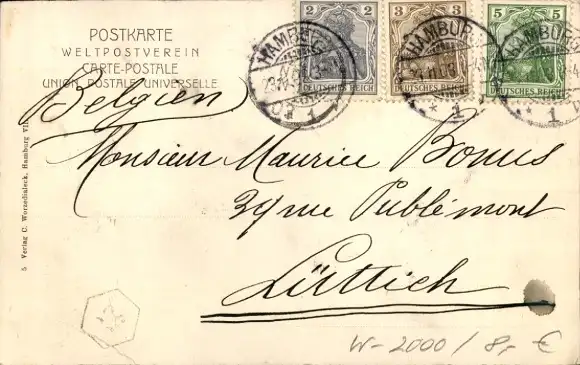 POSTKARTE
WELTPOSTVEREIN
CARTE-POSTALE
UNION POSTALE UNIVERSELLE
2 2
DEUTSCHES REICH
3 3
DEUTSCHES REICH
5 5
DEUTSCHES REICH
HAMBURG
1
HAMBURG
1
HAMBURG
1
Belgien
Monsieur Maurice Bonus
39 rue Publémont
Lüttich
5 Verlag C. Worzedialeck, Hamburg VI
W-2000 / 8,- €